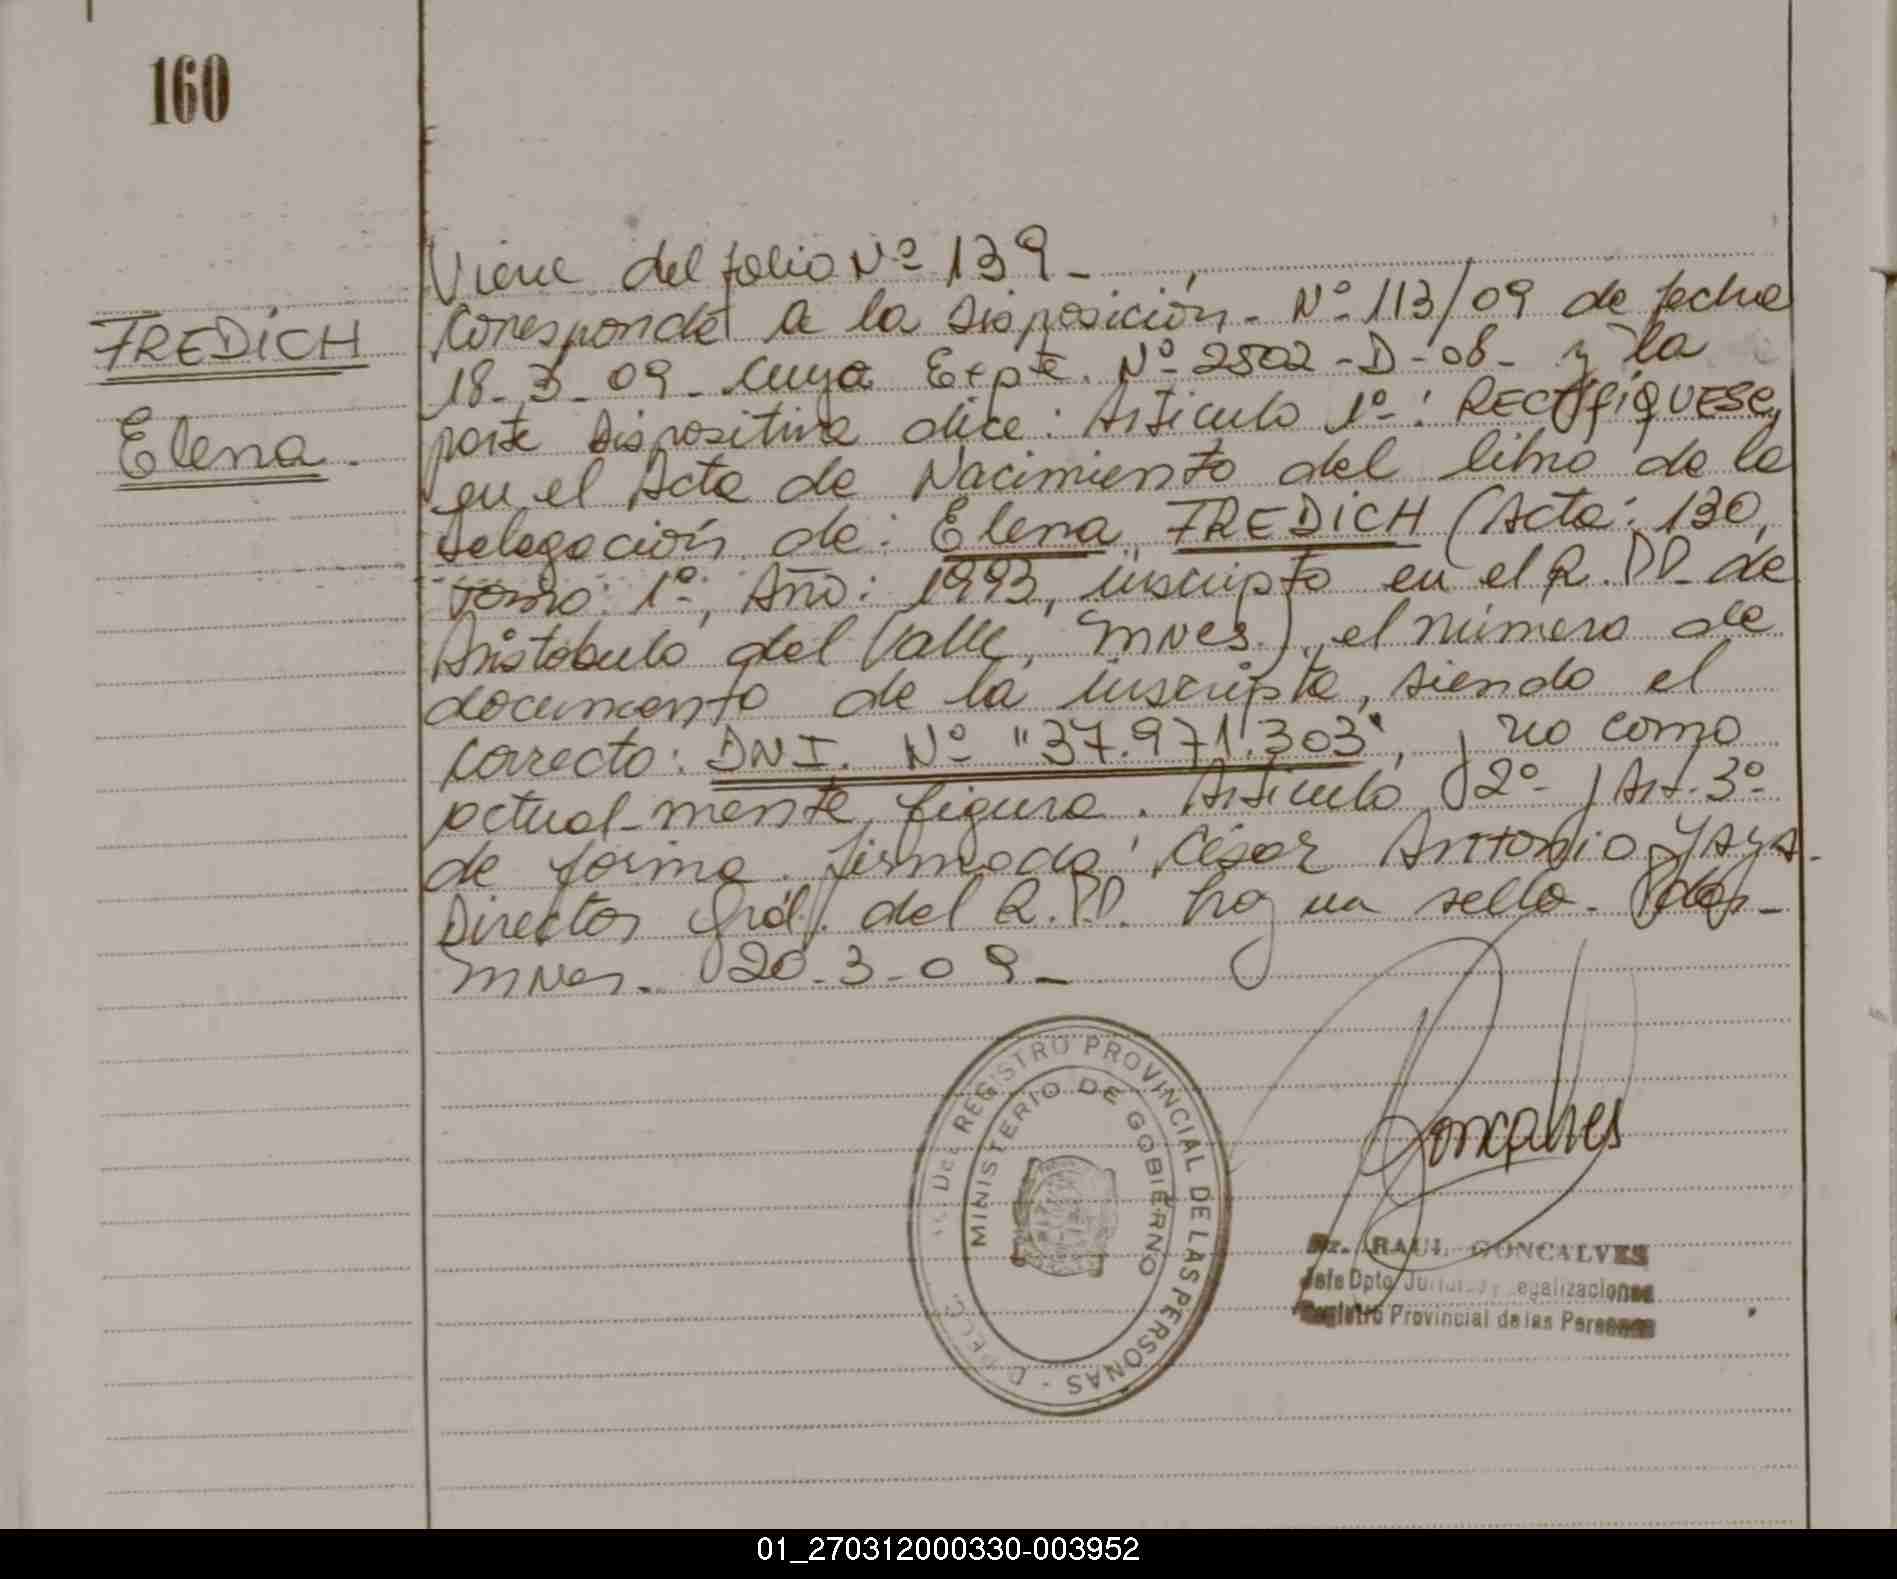 160
FREDICH
Elena.
Viene del folio Nº 139-
Corresponde a la Disposición. Nº 113/09 de fecha
18-3-09- Cuya Expte. Nº 2502-D-08- y la
parte Dispositiva dice: Articulo 1º: RECTIFIQUESE,
en el Acta de Nacimiento del libro de la
Delegación de: Elena FREDICH (Acta: 130,
Tomo: 1º, Año: 1993, inscripta en el R.PP. de
Aristobulo del Valle, Mnes.), el número de
documento de la inscripta, siendo el
correcto: DNI. Nº "37.971.303", y no como
actual-mente figura. Articulo 2º y Art. 3º
de forma. firmado: César Antonio Yaya.
Director Gral. del R.PP. hay un sello. Pdas-
Mnes. 20-3-09-
REGISTRO PROVINCIAL DE LAS PERSONAS
MINISTERIO DE GOBIERNO
Goncalves
RAUL GONCALVES
Jefe Dpto. Legalizaciones
Registro Provincial de las Personas
01_270312000330-003952